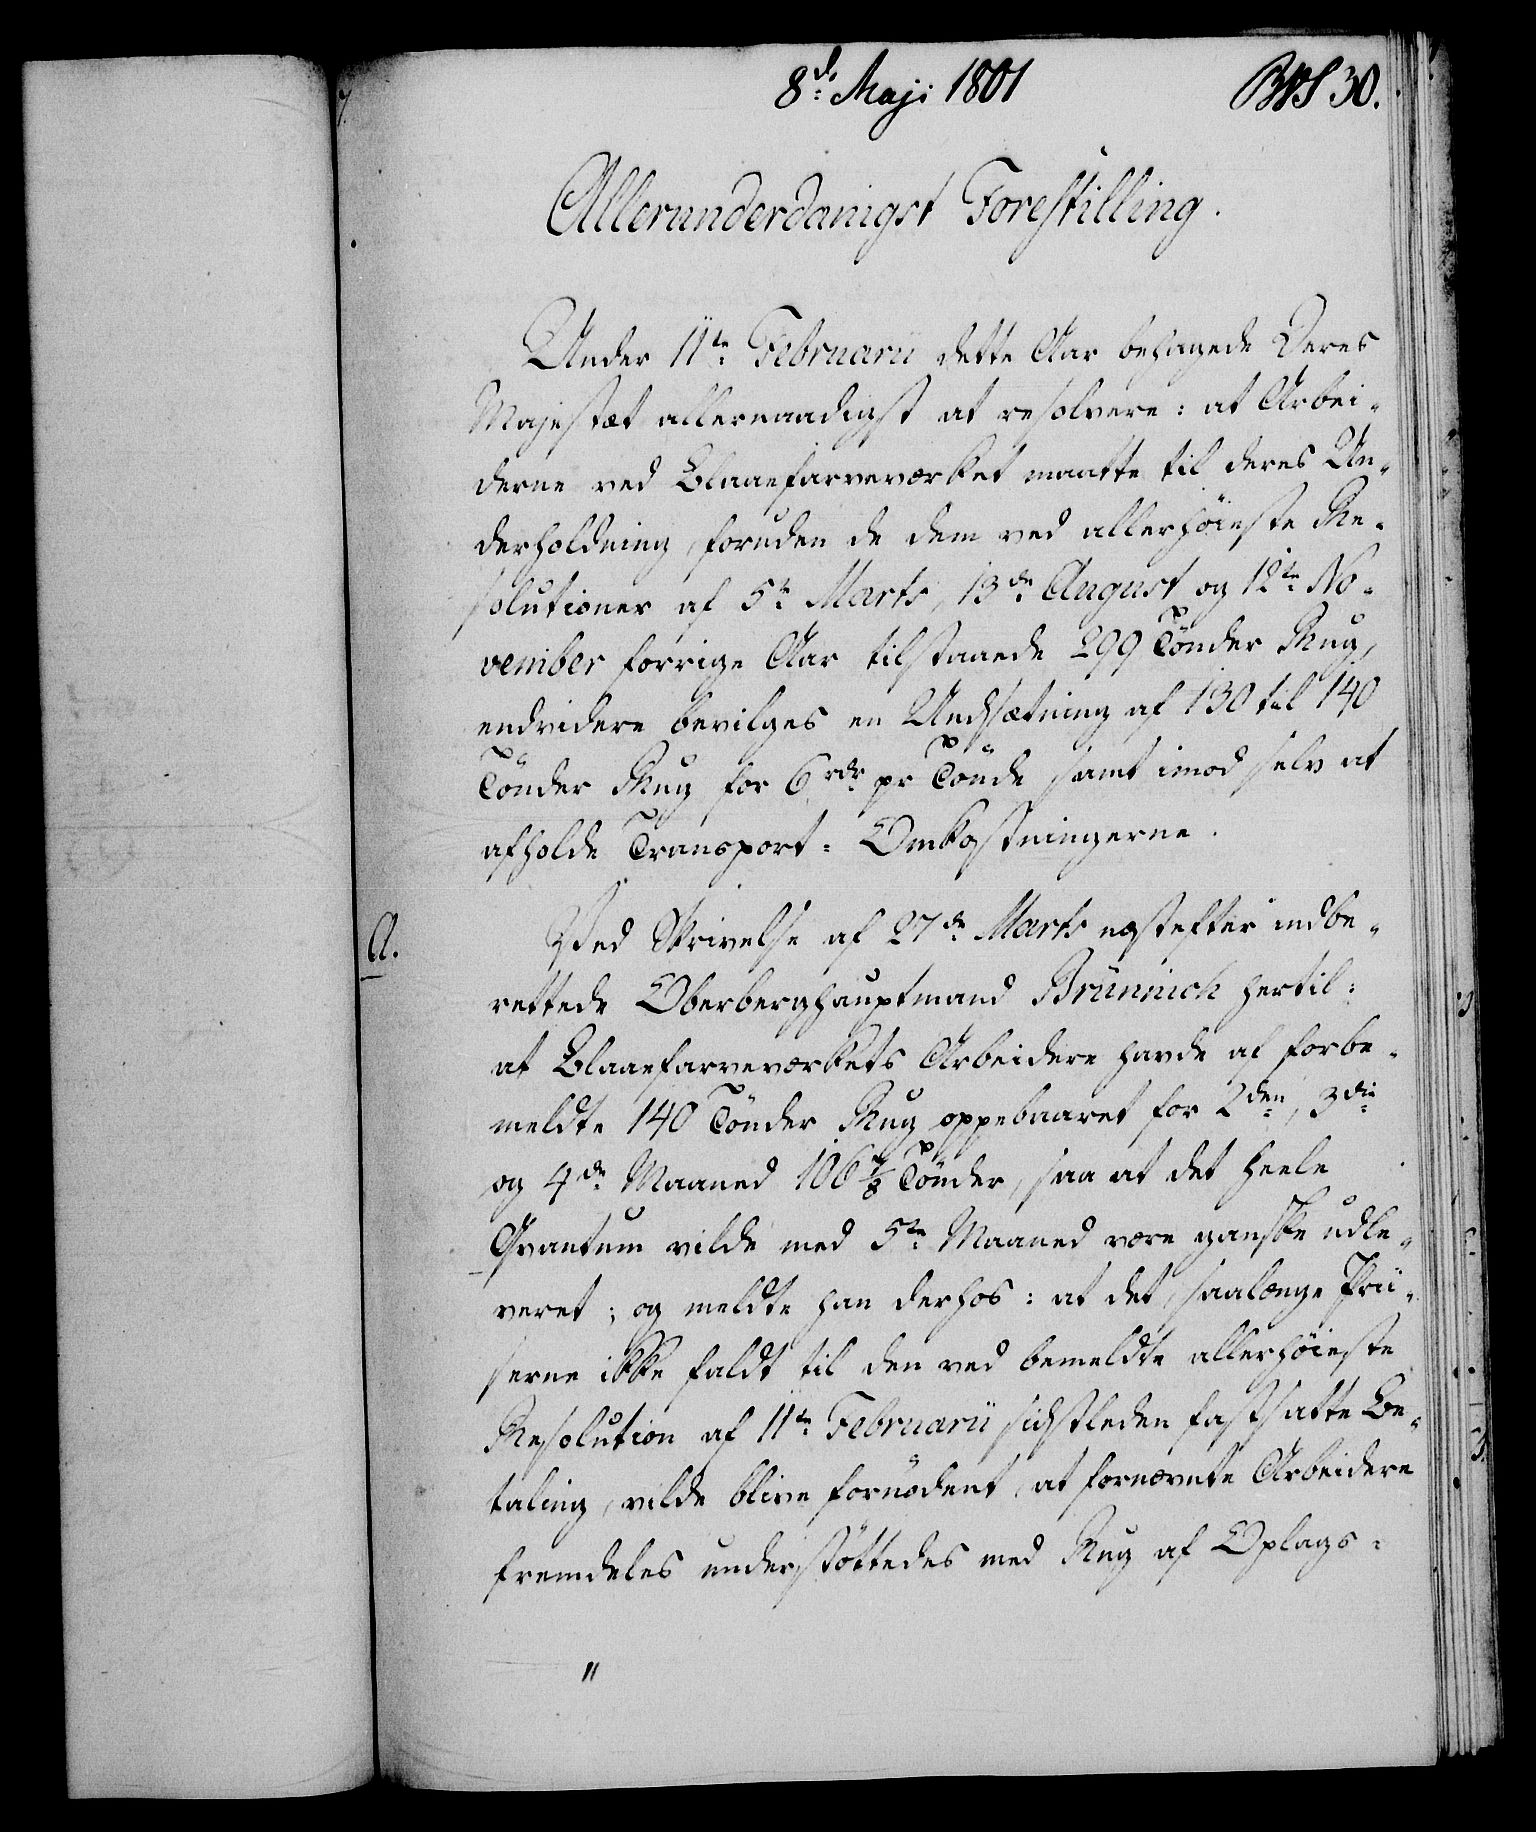 8de Maji 1801
30.
Allerunderdanigst Forestilling.
Under 11te Februarii dette Aar behagede Deres
Majestæt allernaadigst at resolvere: at Arbei-
derne ved Blaaefarveværket maatte til deres Un-
derholdning, foruden de dem ved allerhöieste Re-
solutioner af 5te Marts, 13de August og 12te No-
vember forrige Aar tilstaaede 299 Tönder Rug,
endvidere bevilges en Undsætning af 130 til 140
Tönder Rug for 6 rdr pr Tönde samt imod selv at
afholde Transport-Omkostningerne.
A.
Ved Skrivelse af 27de Marts næstefter indbe-
rettede Oberberghauptmand Brünnich hertil:
at Blaaefarveværkets Arbeidere havde af forbe-
meldte 140 Tönder Rug oppebaaret for 2den, 3die
og 4de Maaned 106 7/8 Tönder, saa at det heele
Qvantum vilde med 5te Maaned være ganske udle-
veret; og meldte han derhos: at det, saalænge Prii-
serne ikke faldt til den ved bemeldte allerhöieste
Resolution af 11te Februarii sidstleden fastsatte Be-
taling, vilde blive fornödent, at fornævnte Arbeidere
fremdeles understöttedes med Rug af Oplags-
"